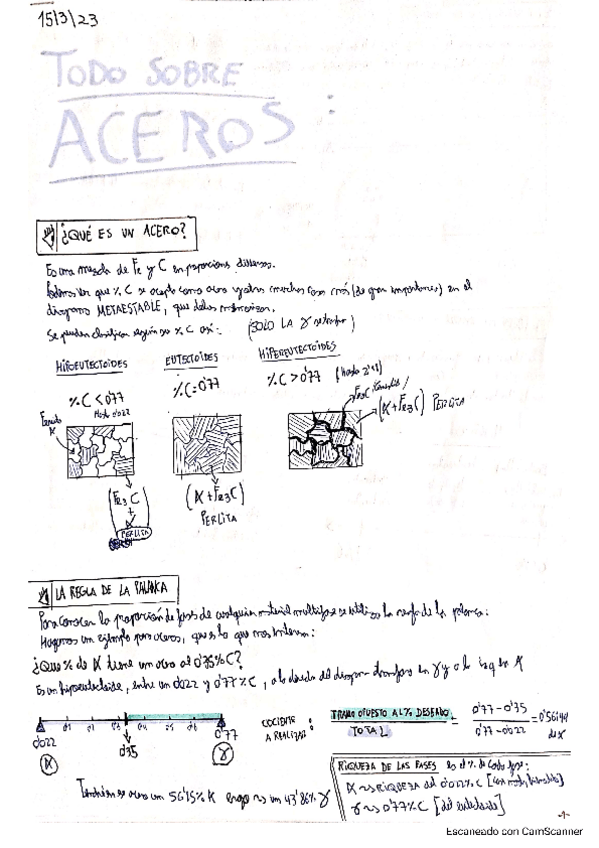 15/3/23
TODO SOBRE
ACEROS
¿QUÉ ES UN ACERO?
Es una mezcla de Fe y C en proporciones diversas.
que % C se acepta como acero y otras muchas cosas más (de gran importancia) en el
diagrama METAESTABLE, que debes memorizar.
Se pueden clasificar según su % C así: (SOLO LA γ
HIPOEUTECTOIDES
EUTECTOIDES
HIPEREUTECTOIDES
%C < 0'77
Hasta 0'022
%C = 0'77
%C > 0'77 (Hasta 2'11)
Ferrita
α
Fe3C
(α + Fe3C) PERLITA
(Fe3C
+
PERLITA
(α + Fe3C)
PERLITA
LA REGLA DE LA PALANCA
Para conocer la proporción de fases de cualquier material multifase se utiliza la regla de la palanca:
Hagamos un ejemplo para aceros, que es lo que nos interesa:
¿Que % de α tiene un acero al 0'35%C?
Es un hipoeutectoide, entre un 0'022 y 0'77 %C, a la derecha del diagrama tendremos γ y a la izq α
0'1 0'2 0'3 0'4 0'5 0'6
0'022
0'35
0'77
α
γ
COCIENTE
A REALIZAR:
TRAMO OPUESTO AL % DESEADO
TOTAL
=
0'77 - 0'35
0'77 - 0'022
= 0'5614
de α
un 56'15% α luego un 43'86% γ
RIQUEZA DE LAS FASES es el % de cada fase:
α → RIQUEZA del 0'022%C
γ → 0'77%C [del eutectoide]
-1-
Escaneado con CamScanner